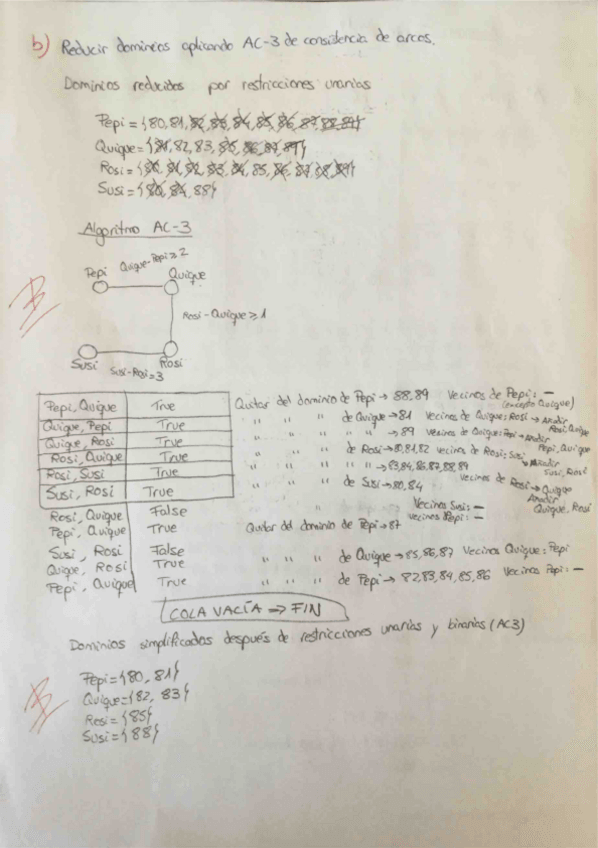 b) Reducir dominios aplicando AC-3 de consistencia de arcos.
Dominios reducidos por restricciones unarias
Pepi = {80, 81, 82, 83, 84, 85, 86, 87, 88, 89}
Quique = {81, 82, 83, 85, 86, 87, 89}
Rosi = {80, 81, 82, 83, 84, 85, 86, 87, 88, 89}
Susi = {80, 84, 88}
Algoritmo AC-3
Pepi Quique-Pepi ≥ 2 Quique
Rosi-Quique ≥ 1
Susi Susi-Rosi = 3 Rosi
B
Pepi, Quique True Quitar del dominio de Pepi → 88, 89 Vecinos de Pepi: — (excepto Quique)
Quique, Pepi True " " " de Quique → 81 Vecinos de Quique: Rosi → Añadir Rosi, Quique
Quique, Rosi True " " " " → 89 Vecinos de Quique: Pepi → Añadir Pepi, Quique
Rosi, Quique True " " " de Rosi → 80, 81, 82 vecinos de Rosi: Susi → Añadir Susi, Rosi
Rosi, Susi True " " " " " → 83, 84, 86, 87, 88, 89 Vecinos de Rosi → Quique Añadir Quique, Rosi
Susi, Rosi True " " " de Susi → 80, 84 Vecinos Susi: —
Rosi, Quique False
Pepi, Quique True Quitar del dominio de Pepi → 87 vecinos Pepi: —
Susi, Rosi False
Quique, Rosi True " " " de Quique → 85, 86, 87 Vecinos Quique: Pepi
Pepi, Quique True " " " de Pepi → 82, 83, 84, 85, 86 Vecinos Pepi: —
COLA VACÍA ⇒ FIN
Dominios simplificados después de restricciones unarias y binarias (AC3)
Pepi = {80, 81}
Quique = {82, 83}
Rosi = {85}
Susi = {88}
B